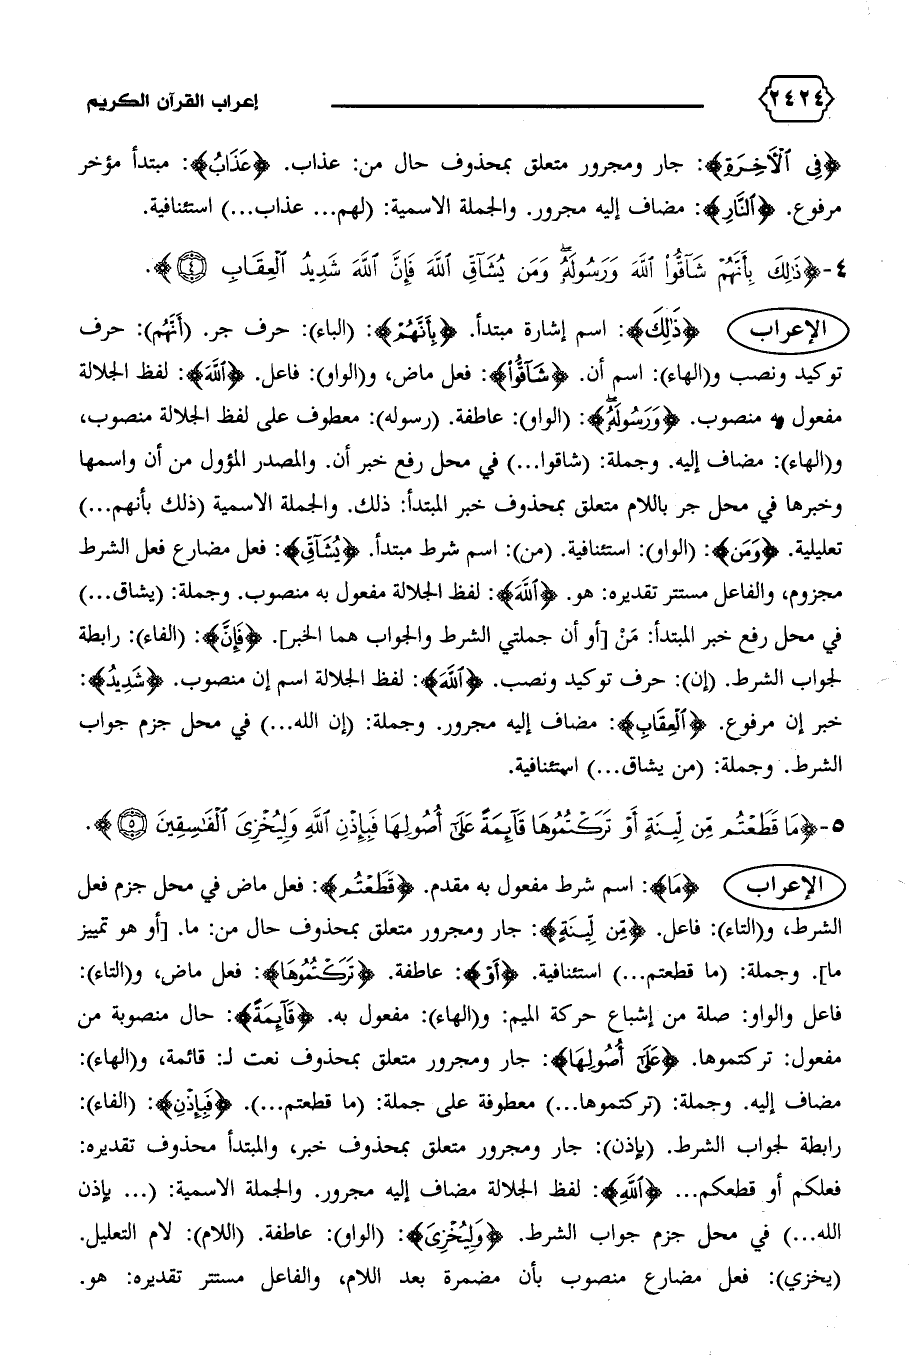 ٢٤٢٤ إعراب القرآن الكريم
﴿فِي ٱلْآخِرَةِ﴾: جار ومجرور متعلق بمحذوف حال من: عذاب. ﴿عَذَابُ﴾: مبتدأ مؤخر
مرفوع. ﴿ٱلنَّارِ﴾: مضاف إليه مجرور. والجملة الاسمية: (لهم... عذاب...) استئنافية.
٤-﴿ذَٰلِكَ بِأَنَّهُمْ شَآقُّوا۟ ٱللَّهَ وَرَسُولَهُۥ ۖ وَمَن يُشَآقِّ ٱللَّهَ فَإِنَّ ٱللَّهَ شَدِيدُ ٱلْعِقَابِ ٤﴾.
الإعراب ﴿ذَٰلِكَ﴾: اسم إشارة مبتدأ. ﴿بِأَنَّهُمْ﴾: (الباء): حرف جر. (أَنَّهُم): حرف
توكيد ونصب و(الهاء): اسم أن. ﴿شَآقُّوا۟﴾: فعل ماض، و(الواو): فاعل. ﴿ٱللَّهَ﴾: لفظ الجلالة
مفعول به منصوب. ﴿وَرَسُولَهُۥ ۖ﴾: (الواو): عاطفة. (رسوله): معطوف على لفظ الجلالة منصوب،
و(الهاء): مضاف إليه. وجملة: (شاقوا...) في محل رفع خبر أن. والمصدر المؤول من أن واسمها
وخبرها في محل جر باللام متعلق بمحذوف خبر المبتدأ: ذلك. والجملة الاسمية (ذلك بأنهم...)
تعليلية. ﴿وَمَن﴾: (الواو): استئنافية. (من): اسم شرط مبتدأ. ﴿يُشَآقِّ﴾: فعل مضارع فعل الشرط
مجزوم، والفاعل مستتر تقديره: هو. ﴿ٱللَّهَ﴾: لفظ الجلالة مفعول به منصوب. وجملة: (يشاق...)
في محل رفع خبر المبتدأ: مَنْ [أو أن جملتي الشرط والجواب هما الخبر]. ﴿فَإِنَّ﴾: (الفاء): رابطة
لجواب الشرط. (إن): حرف توكيد ونصب. ﴿ٱللَّهَ﴾: لفظ الجلالة اسم إن منصوب. ﴿شَدِيدُ﴾:
خبر إن مرفوع. ﴿ٱلْعِقَابِ﴾: مضاف إليه مجرور. وجملة: (إن الله...) في محل جزم جواب
الشرط. وجملة: (من يشاق...) استئنافية.
٥-﴿مَا قَطَعْتُم مِّن لِّينَةٍ أَوْ تَرَكْتُمُوهَا قَآئِمَةً عَلَىٰٓ أُصُولِهَا فَبِإِذْنِ ٱللَّهِ وَلِيُخْزِىَ ٱلْفَٰسِقِينَ ٥﴾.
الإعراب ﴿مَا﴾: اسم شرط مفعول به مقدم. ﴿قَطَعْتُم﴾: فعل ماض في محل جزم فعل
الشرط، و(التاء): فاعل. ﴿مِّن لِّينَةٍ﴾: جار ومجرور متعلق بمحذوف حال من: ما. [أو هو تمييز
ما]. وجملة: (ما قطعتم...) استئنافية. ﴿أَوْ﴾: عاطفة. ﴿تَرَكْتُمُوهَا﴾: فعل ماض، و(التاء):
فاعل والواو: صلة من إشباع حركة الميم: و(الهاء): مفعول به. ﴿قَآئِمَةً﴾: حال منصوبة من
مفعول: تركتموها. ﴿عَلَىٰٓ أُصُولِهَا﴾: جار ومجرور متعلق بمحذوف نعت لـ: قائمة، و(الهاء):
مضاف إليه. وجملة: (تركتموها...) معطوفة على جملة: (ما قطعتم...). ﴿فَبِإِذْنِ﴾: (الفاء):
رابطة لجواب الشرط. (بإذن): جار ومجرور متعلق بمحذوف خبر، والمبتدأ محذوف تقديره:
فعلكم أو قطعكم... ﴿ٱللَّهِ﴾: لفظ الجلالة مضاف إليه مجرور. والجملة الاسمية: (... بإذن
الله...) في محل جزم جواب الشرط. ﴿وَلِيُخْزِىَ﴾: (الواو): عاطفة. (اللام): لام التعليل.
(يخزي): فعل مضارع منصوب بأن مضمرة بعد اللام، والفاعل مستتر تقديره: هو.